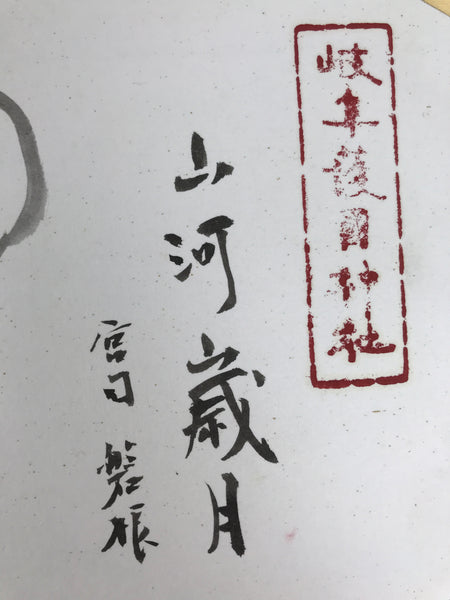 岐阜護国神社
山河歳月
宮司 磐根